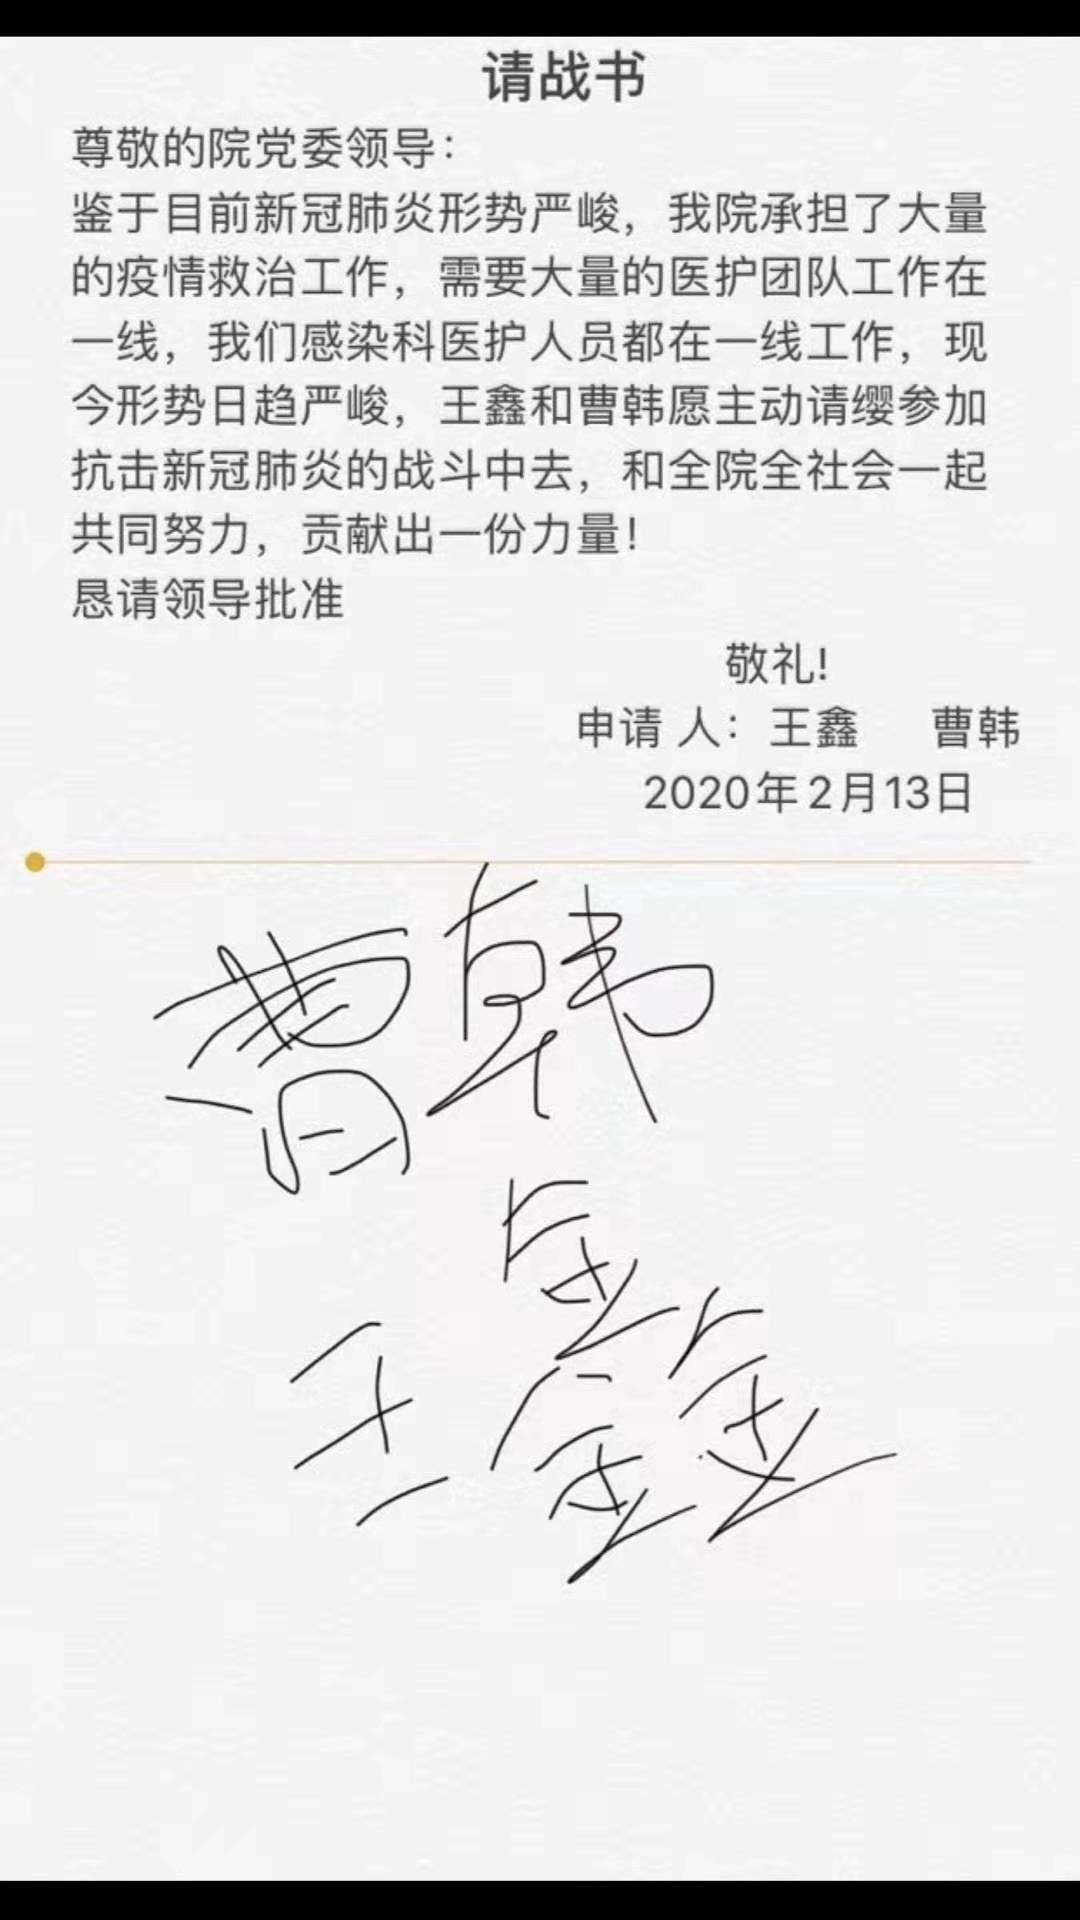 请战书
尊敬的院党委领导：
鉴于目前新冠肺炎形势严峻，我院承担了大量
的疫情救治工作，需要大量的医护团队工作在
一线，我们感染科医护人员都在一线工作，现
今形势日趋严峻，王鑫和曹韩愿主动请缨参加
抗击新冠肺炎的战斗中去，和全院全社会一起
共同努力，贡献出一份力量！
恳请领导批准
敬礼！
申请 人：王鑫 曹韩
2020年2月13日
曹韩
王鑫